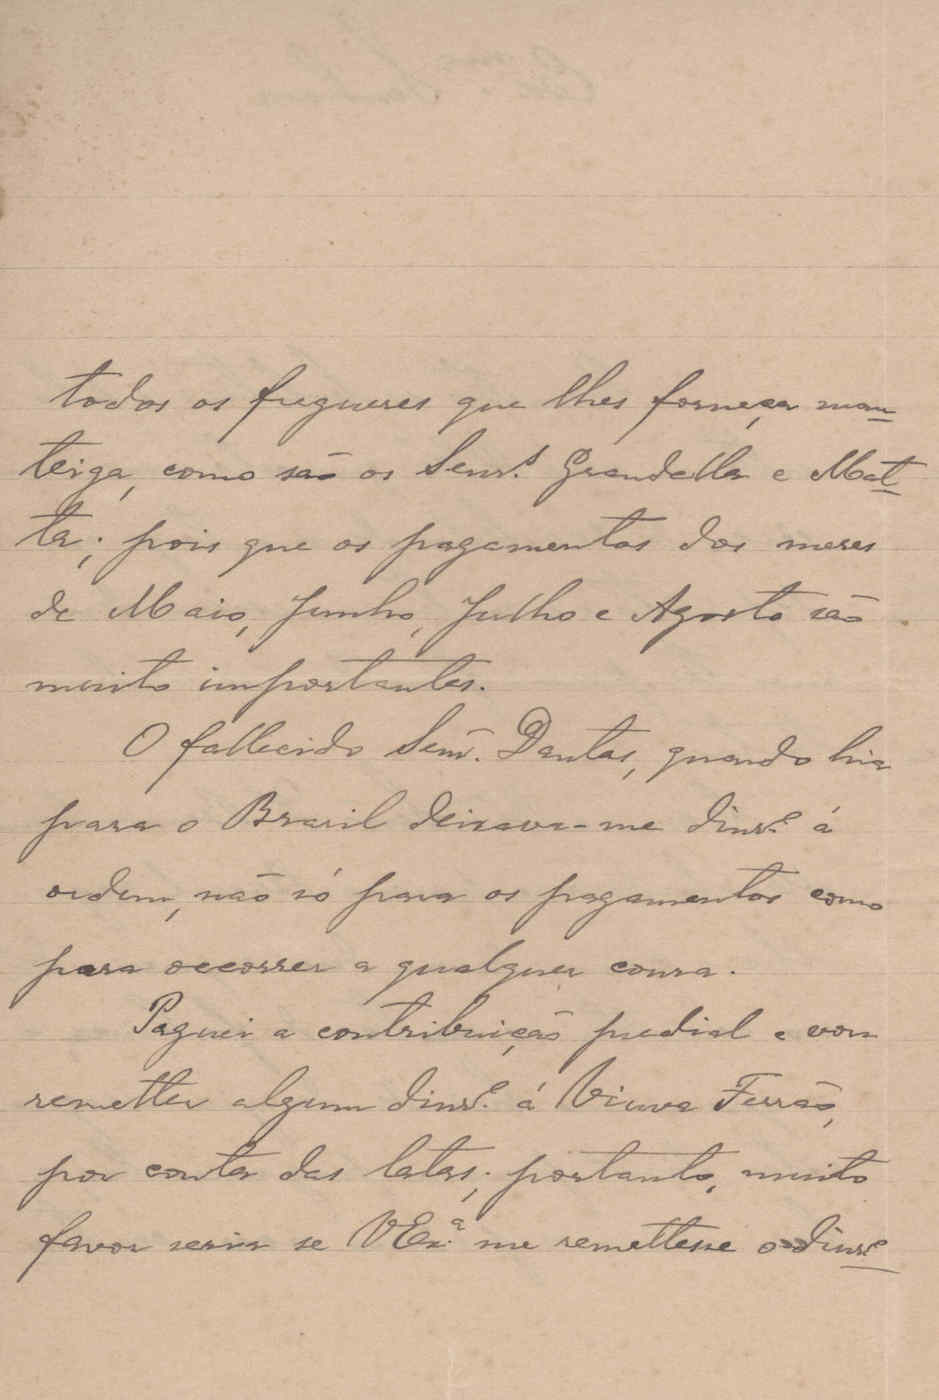 todos os freguezes que lhes forneça man-
teiga, como são os Senr.s Grandella e Mat-
ta; pois que os pagamentos dos mezes
de Maio, Junho, Julho e Agosto são
muito importantes.
O fallecido Senr. Dantas, quando hia
para o Brazil deixava-me dinr.o á
ordem, não só para os pagamentos como
para occorrer a qualquer couza.
Paguei a contribuição predial e vou
remetter algum dinr.o á Viuva Ferrão,
por conta das latas; portanto, muito
favor seria se VEx.a me remettesse o dinr.o